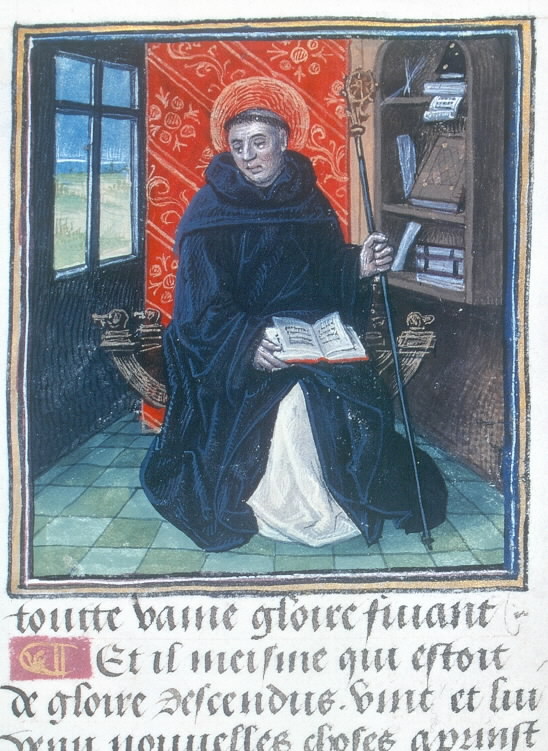 toutte vaine gloire fuiant
Et il meisme qui estoit
de gloire descendus. vint et lui
nouuelles choses aprinst